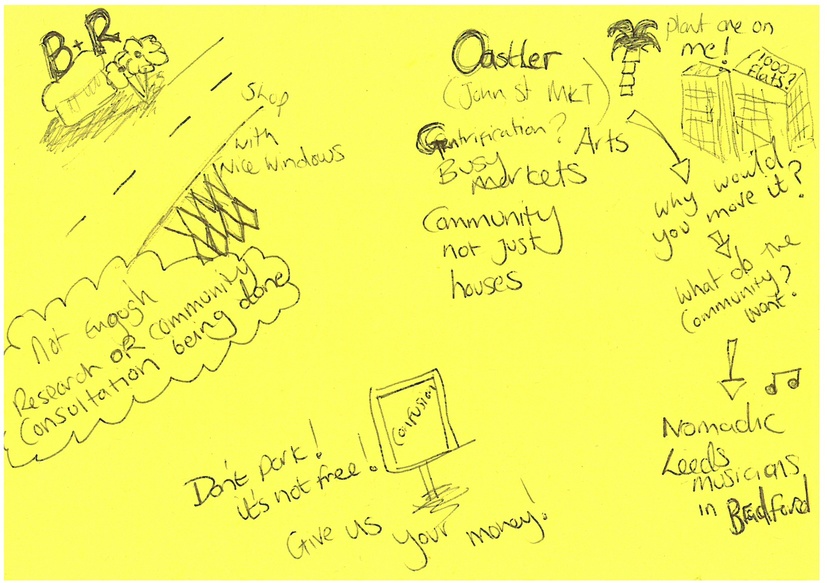 B+R
Shop
with
Nice Windows
Not Enough
Research OR Community
Consultation being done
Oastler
(John St MKT)
Gentrification? Arts
Busy
Markets
Community
not just
houses
plant one on
me!
1000?
flats?
why would
you move it?
What do the
Community?
want?
Nomadic
Leeds
musicians
in Bradford
Confusion
Don't park!
it's not free!
Give us your money!